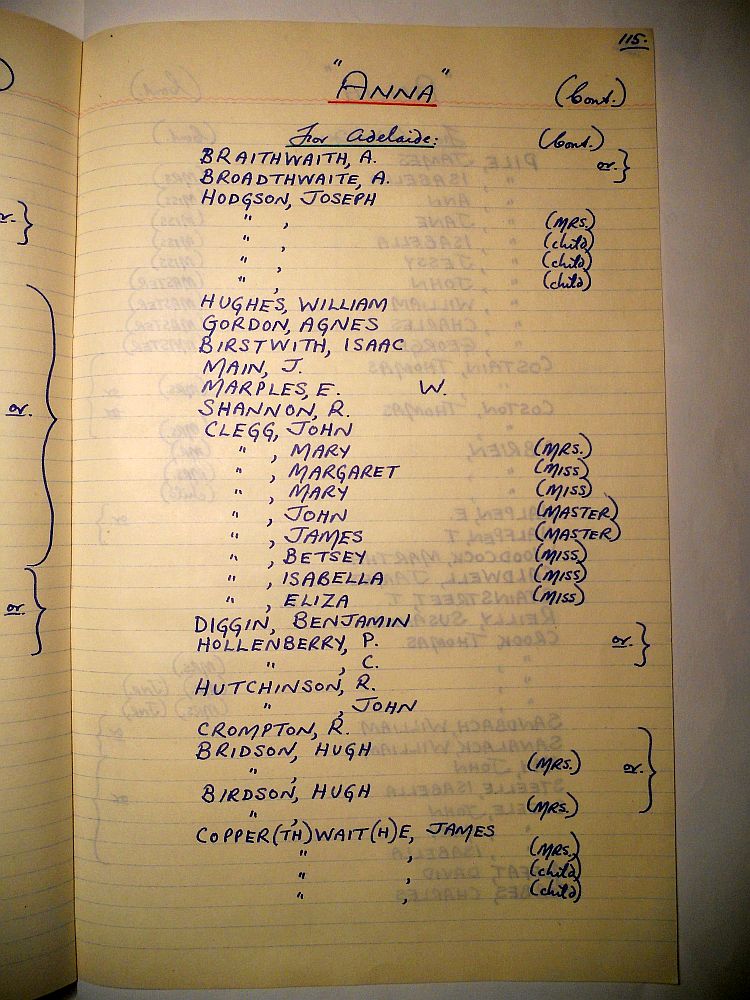 115.
"ANNA" (Cont.)
For Adelaide: (Cont.)
BRAITHWAITH, A. or. }
BROADTHWAITE, A.
HODGSON, JOSEPH
" , (MRS.)
" , (child)
" , (child)
" , (child)
HUGHES, WILLIAM
GORDON, AGNES
BIRSTWITH, ISAAC
MAIN, J.
MARPLES, E. W.
SHANNON, R.
CLEGG, JOHN
" , MARY (MRS.)
" , MARGARET (MISS)
" , MARY (MISS)
" , JOHN (MASTER)
" , JAMES (MASTER)
" , BETSEY (MISS)
" , ISABELLA (MISS)
" , ELIZA (MISS)
DIGGIN, BENJAMIN
HOLLENBERRY, P. or. }
" , C.
HUTCHINSON, R.
" , JOHN
CROMPTON, R.
BRIDSON, HUGH
" , (MRS.) or. }
BIRDSON, HUGH
" , (MRS.)
COPPER(TH)WAIT(H)E, JAMES
" , (MRS.)
" , (child)
" , (child)
or. }
or. }
or. }